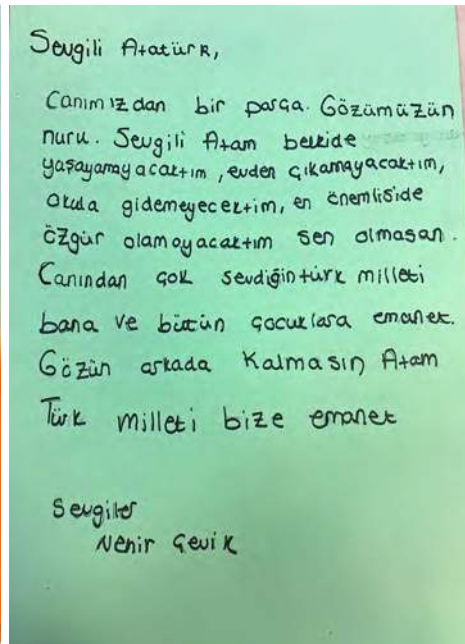 Sevgili Atatürk,
Canımızdan bir parça. Gözümüzün
nuru. Sevgili Atam belkide
yaşayamayacaktım, evden çıkamayacaktım,
okula gidemeyecektim, en önemliside
özgür olamayacaktım sen olmasan.
Canından çok sevdiğin türk milleti
bana ve bütün çocuklara emanet.
Gözün arkada kalmasın Atam
Türk milleti bize emanet
Sevgiler
Nehir Çevik